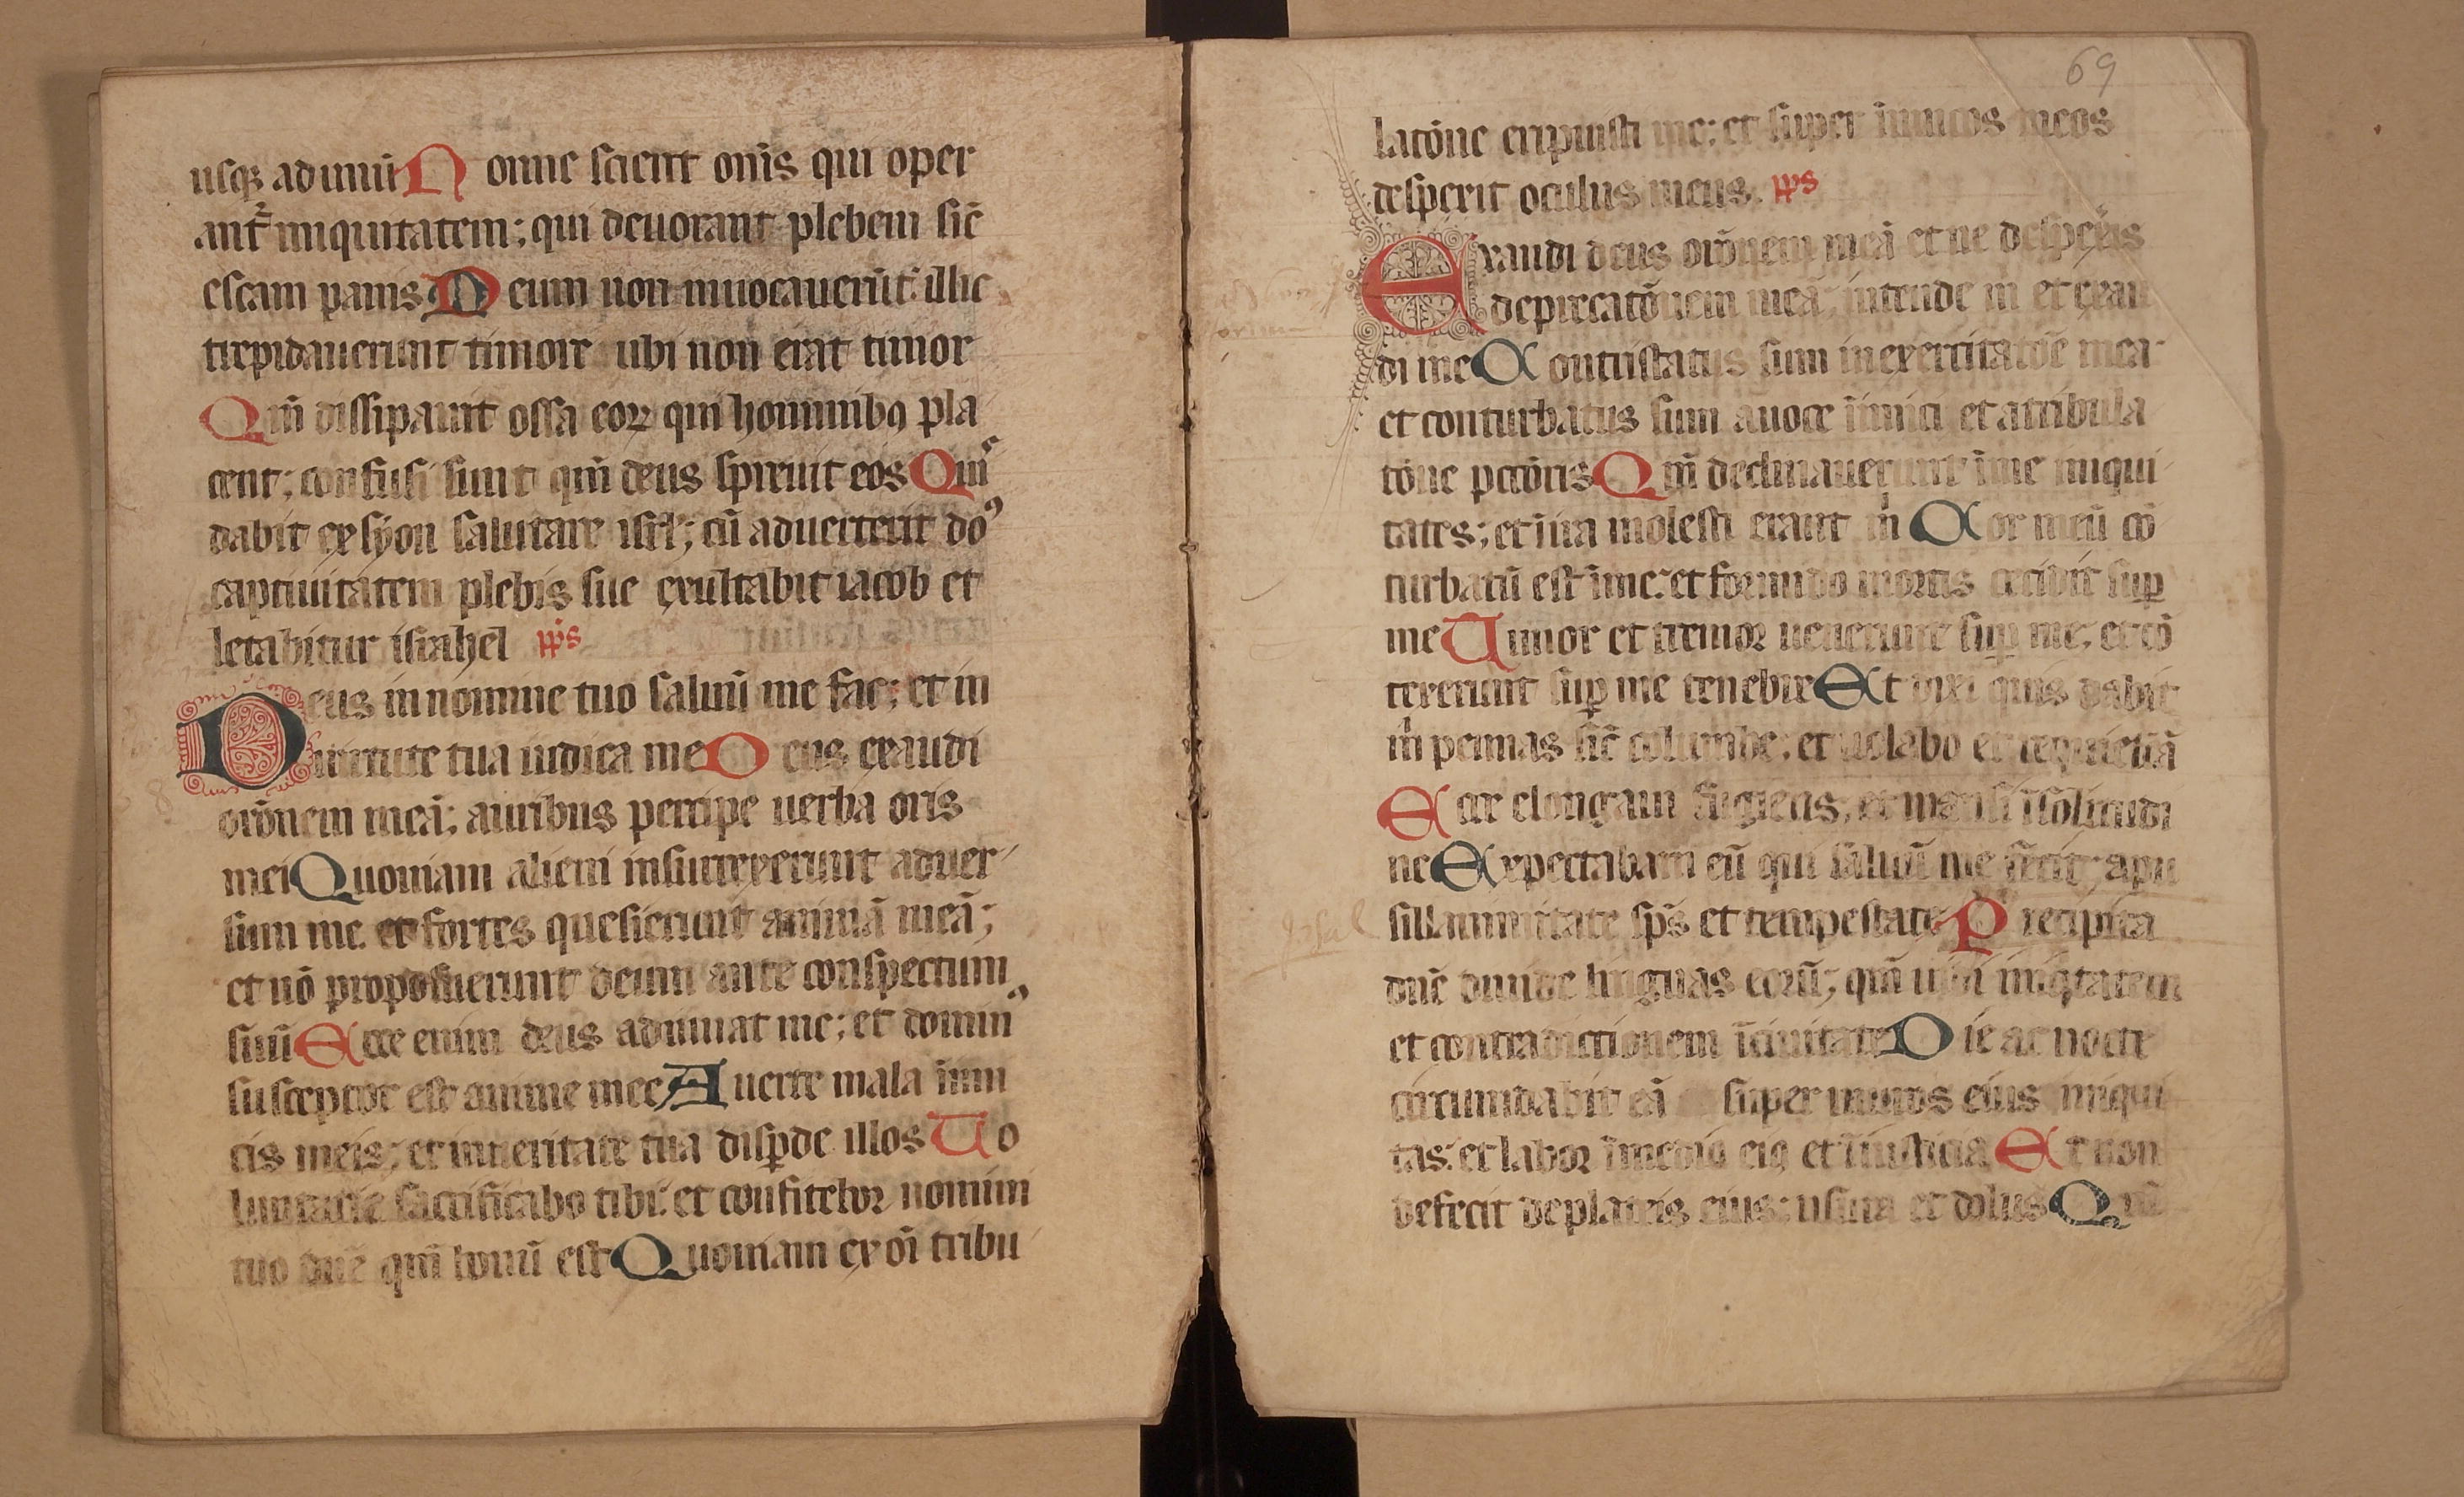 usqꝫ ad unū Nonne scient om̄s qui oper
ant᷑ iniquitatem; qui deuorant plebem sic̄
escam panis Deum non inuocauerūt: illic
trepidauerunt timore ubi non erat timor
Qm̄ dissipauit ossa eoꝝ qui hominibꝯ pla
cent; confusi sunt qm̄ deus spreuit eos Quis
dabit ex syon salutare isrl̄; cū aduerterit doꝰ
captiuitatem plebis sue exultabit iacob et
letabitur israhel p̄s
Deus in nomine tuo saluū me fac; et in
uirtute tua iudica me Deus exaudi
orōnem meā; auribus percipe uerba oris
mei Quoniam alieni insurrexerunt aduer
sum me et fortes quesierunt animā meā;
et nō proposuerunt deum ante conspectum
suū Ecce enim deus adiuuat me; et dominꝰ
susceptor est anime mee Auerte mala inim
cis meis; et in ueritate tua disꝑde illos Uo
luntarie sacrificabo tibi: et confitebor nomini
tuo dn̄e qm̄ bonū est Quoniam ex oī tribu
69
latōne eripuisti me; et super inimicos meos
despexit oculus meus. p̄s
Exaudi deus orōnem meā et ne despexeris
deprecatōnem meā; intende m̄ et exau
di me Contristatus sum in exercitatōe mea
et conturbatus sum a uoce inimici et a tribula
tōne pctōris Qm̄ declinauerunt ī me iniqui
tates; et ī ira molesti erant m̄ Cor meū cō
turbatū est ī me: et formido mortis cecidit suꝑ
me Timor et tremor uenerunt suꝑ me; et cō
texerunt suꝑ me tenebre Et dixi quis dabit
m̄ pennas sic̄ columbe; et uolabo et requiescā
Ecce elongaui fugiens; et mansi ī solitudi
ne Expectabam eū qui saluū me fecit; a pu
sillanimitate sp̄s et tempestate Precipita
dn̄e diuide linguas eorū; qm̄ uidi iniq̄tatem
et contradictionem ī ciuitate Die ac nocte
circumdabit eā super muros eius iniqui
tas: et labor ī medio eiꝯ et iniusticia Et non
defecit de plateis eius: usura et dolus Qm̄